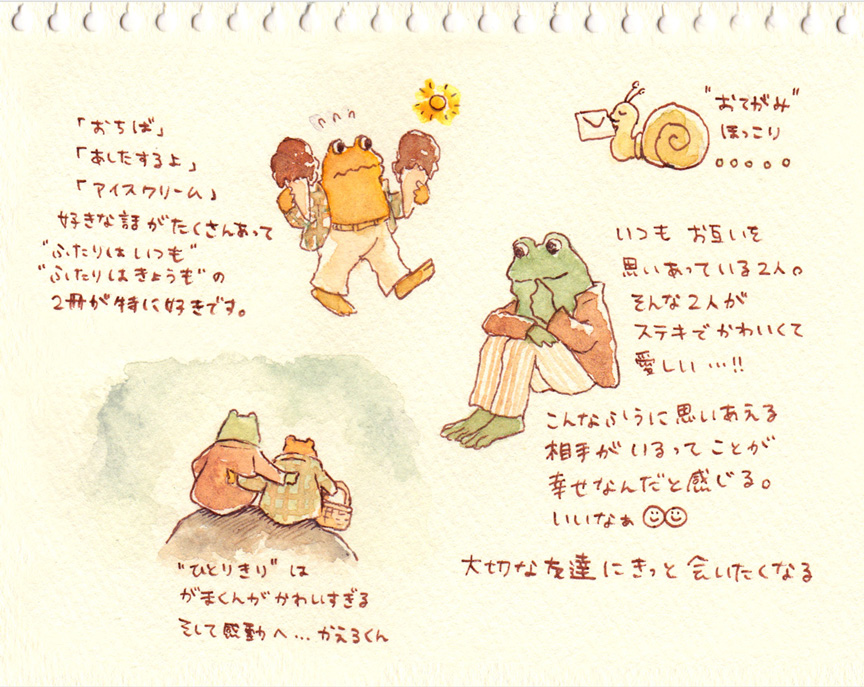 「おちば」
「あしたするよ」
「アイスクリーム」
好きな話がたくさんあって
"ふたりはいつも"
"ふたりはきょうも"の
2冊が特に好きです。
"おてがみ"
ほっこり
。。。。。
いつも お互いを
思いあっている2人。
そんな2人が
ステキでかわいくて
愛しい…!!
こんなふうに思いあえる
相手がいるってことが
幸せなんだと感じる。
いいなぁ
"ひとりきり"は
がまくんがかわいすぎる
そして感動へ…かえるくん
大切な友達にきっと会いたくなる